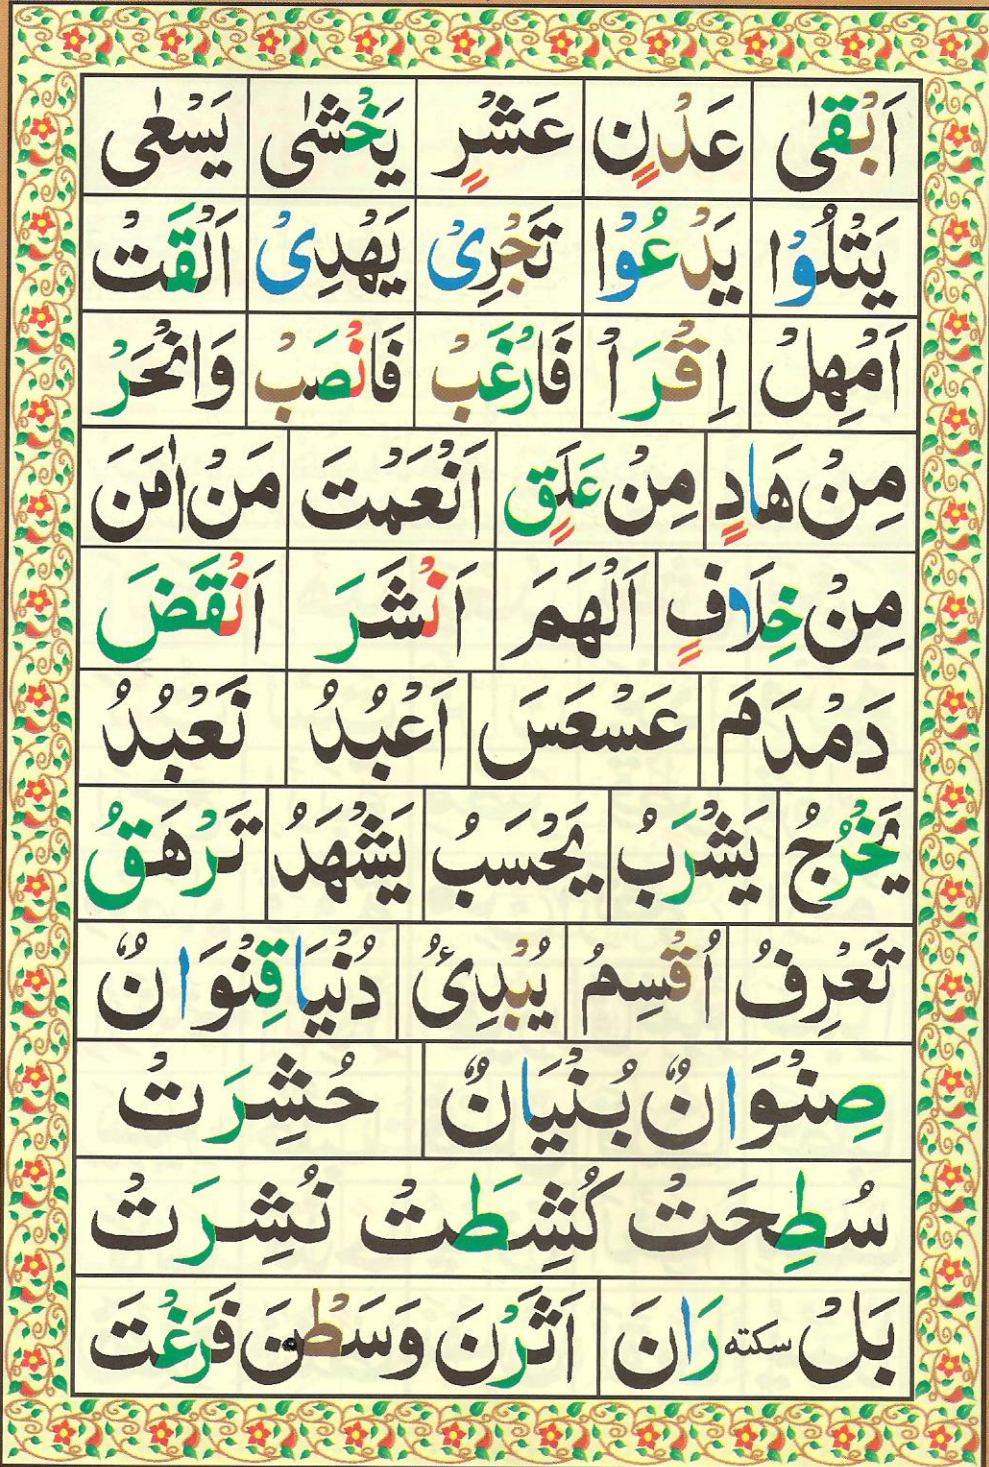 اَبْقٰى عَدْنٍ عَشْرٍ يَخْشٰى يَسْعٰى
يَتْلُوْا يَدْعُوْا تَجْرِىْ يَهْدِىْ اَلْقَتْ
اَمْهِلْ اِقْرَاْ فَارْغَبْ فَانْصَبْ وَانْحَرْ
مِنْ هَادٍ مِنْ عَلَقٍ اَنْعَمْتَ مَنْ اٰمَنَ
مِنْ خِلَافٍ اَلْهَمَ اَنْشَرَ اَنْقَضَ
دَمْدَمَ عَسْعَسَ اَعْبُدُ نَعْبُدُ
يَخْرُجُ يَشْرَبُ يَحْسَبُ يَشْهَدُ تَرْهَقُ
تَعْرِفُ اُقْسِمُ يُبْدِئُ دُنْيَا قِنْوَانٌ
صِنْوَانٌ بُنْيَانٌ حُشِرَتْ
سُطِحَتْ كُشِطَتْ نُشِرَتْ
بَلْ سكته رَانَ اَثَرْنَ وَسَطْنَ فَرَغْتَ